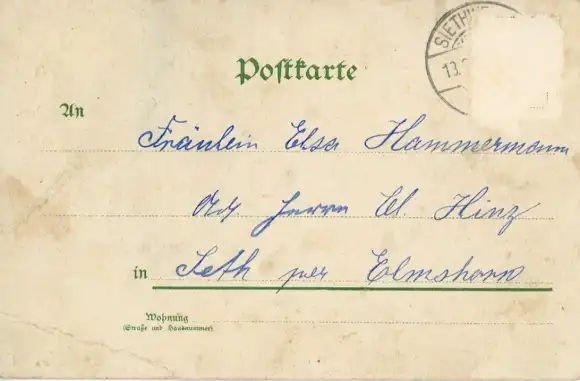 Postkarte
SIETHW
13.
An
Fräulein Elsa Hammermann
Adr Herrn Cl. Hinz
in Seth per Elmshorn
Wohnung
(Straße und Hausnummer)